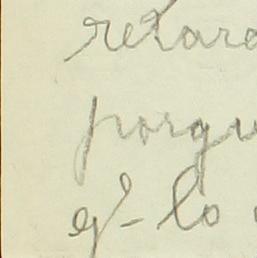 retard
porqu
q.e lo